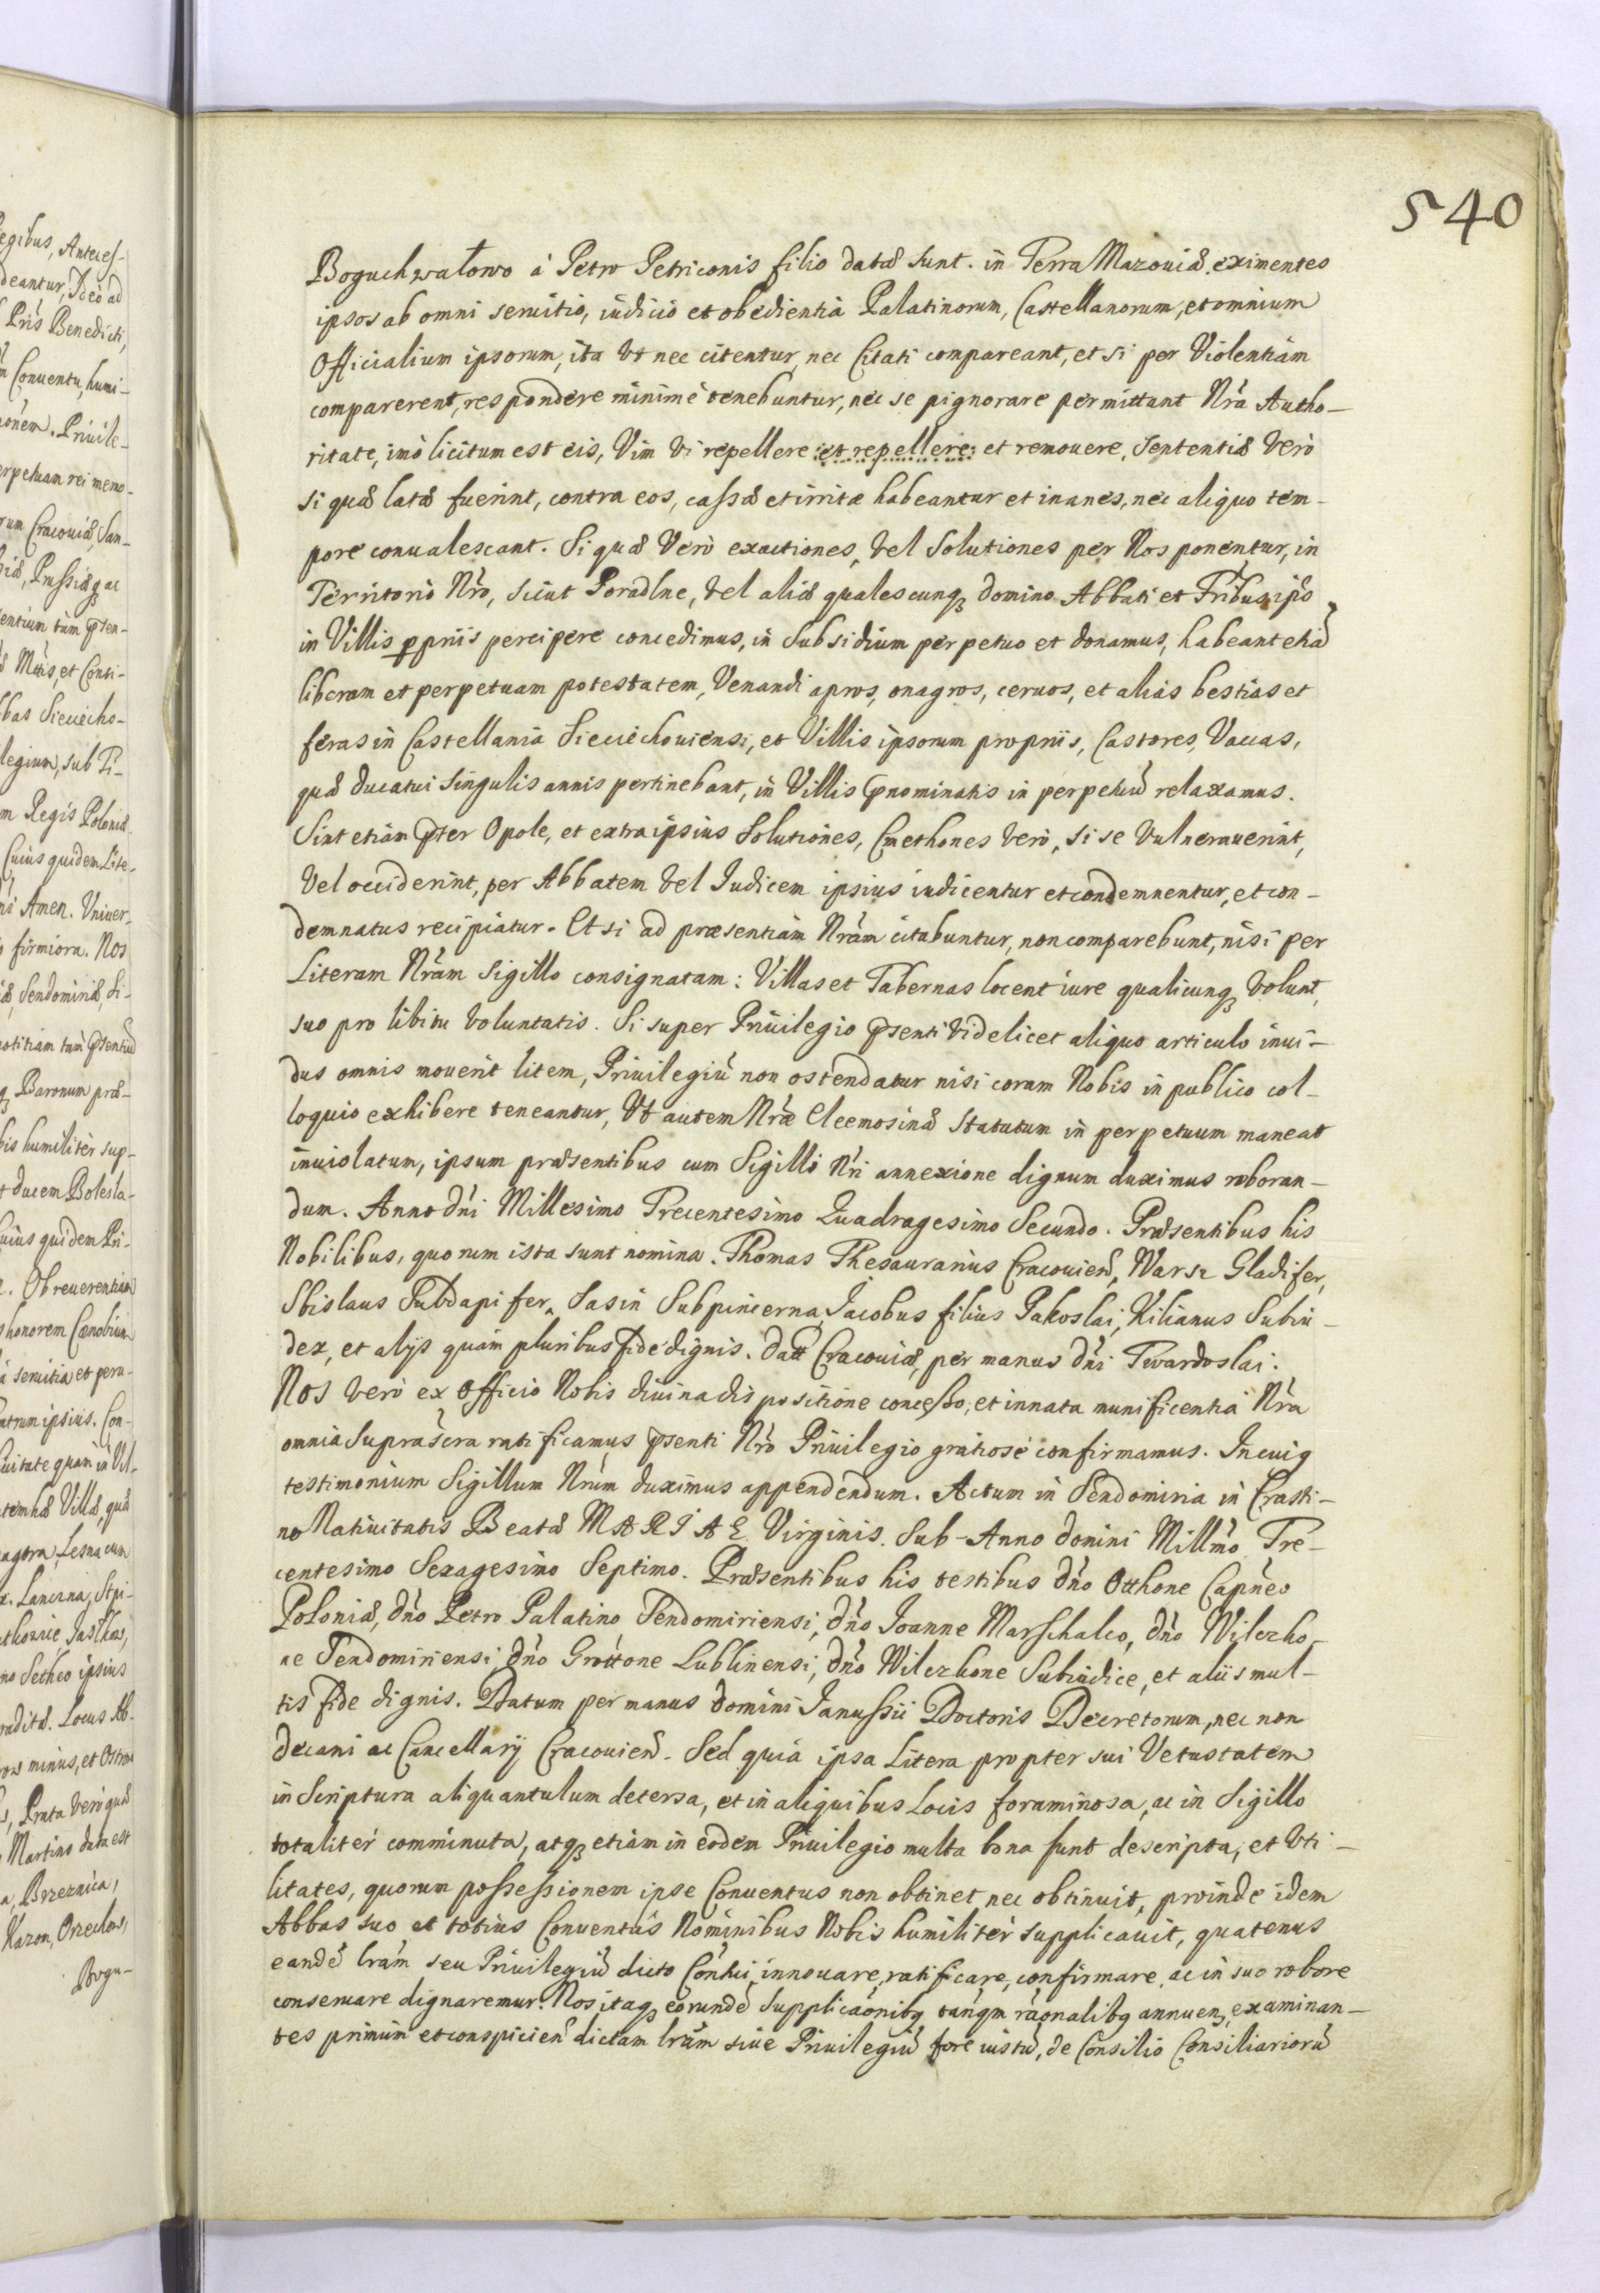 540
Boguchwałowo à Petro Petriconis filio datæ sunt. in Terra Mazouiæ, eximentes
ipsos ab omni seruitio, iudicio et obedientia Palatinorum, Castellanorum, et omnium
Officialium ipsorum, ita vt nec citentur, nec Citati compareant, et si per Violentiam
comparerent, respondere minimè tenebuntur, nec se pignorare permittant Nrã Autho-
ritate, imò licitum est eis, Vim vi repellere et repellere et remouere, Sententiæ verò
si quæ latæ fuerint, contra eos, cassæ et irritæ habeantur et inanes, nec aliquo tem-
pore conualescant. Si quæ Verò exactiones, vel Solutiones per Nos ponentur, in
Territorio Nrõ, sicut Poradlne, vel aliæ qualescunq; domino Abbati et Fribus ips
in Villis ppriis percipere concedimus, in Subsidium perpetuo et donamus, habeant etiã
liberam et perpetuam potestatem, Venandi apros, onagros, ceruos, et alias bestias et
feras in Castellania Sieciechouiensi, et Villis ipsorum propriis, Castores, Vaccas,
quæ ducatui singulis annis pertinebant, in Villis pnominatis in perpetuũ relaxamus.
Sint etiam pter Opole, et extra ipsius Solutiones, Cmethones verò, si se Vulnerauerint,
Vel occiderint, per Abbatem vel Iudicem ipsius iudicentur et condemnentur, et con-
demnatus recipiatur. Et si ad præsentiam Nrãm citabuntur, non comparebunt, nisi per
Literam Nrãm sigillo consignatam: Villas et Tabernas locent iure qualicunq; volunt,
suo pro libitu voluntatis. Si super Priuilegio psenti videlicet aliquo articulo inui-
dus omnis mouerit litem, Priuilegiũ non ostendatur nisi coram Nobis in publico col-
loquio exhibere teneantur, Vt autem Nræ Eleemosinæ Statutum in perpetuum maneat
inuiolatum, ipsum præsentibus cum Sigilli Nri annexione dignum duximus roboran-
dum. Anno dńi Millesimo Trecentesimo Quadragesimo Secundo. Præsentibus his
Nobilibus, quorum ista sunt nomina. Thomas Thesaurarius Cracouień, Warsz Gladifer,
Sbislaus Subdapifer, Sasin Subpincerna, Jacobus filius Jakoslai, Kilianus Subiu-
dex, et alijs quàm pluribus fide dignis. Datt Cracouiæ, per manus dńi Twardoslai.
NOS verò ex Officio Nobis diuina dispositione concesso, et innata munificentia Nrã
omnia suprascra ratificamus psenti Nrõ Priuilegio gratiosè confirmamus. In cuiq
testimonium Sigillum Nrũm duximus appendendum. Actum in Sendomiria in Crasti-
no Natiuitatis Beatæ MARIAE Virginis. Sub-Anno domini Millmõ Tre-
centesimo Sexagesimo Septimo. Præsentibus his testibus dńo Otthone Capńeo
Poloniæ, dńo Petro Palatino Sendomiriensi, dńo Joanne Marschalco, dńo Wilczko
ac Sendomiriensi, dńo Grottone Lublinensi, dńo Wilczkone Subiudice, et aliis mul-
tis fide dignis. Datum per manus domini Janussii Doctoris Decretorum, nec non
decani ac Cancellarij Cracouień. Sed quia ipsa Litera propter sui Vetustatem
in Scriptura aliquantulum detersa, et in aliquibus Locis foraminosa, ac in Sigillo
totaliter comminuta, atq; etiam in eodem Priuilegio multa bona sunt descripta, et vti-
litates, quorum possessionem ipse Conuentus non obtinet, nec obtinuit, proinde idem
Abbas suo et totius Conuentus Nominibus Nobis humiliter supplicauit, quatenus
eandẽ lrãm seu Priuilegiũ dicto Contui, innouare, ratificare, confirmare, ac in suo robore
conseruare dignaremur. Nos itaq; eorundẽ Supplicaõnibq tanqm raõnalibq annuen, examinan-
tes primũm et conspicień dictam lrãm siue Priuilegiũ fore iustũ, de Consilio Consiliariorũ